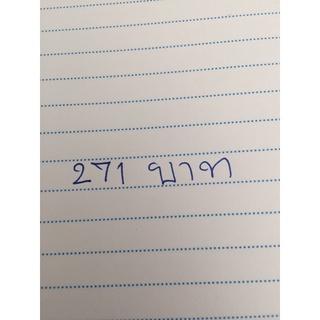 271 บาท